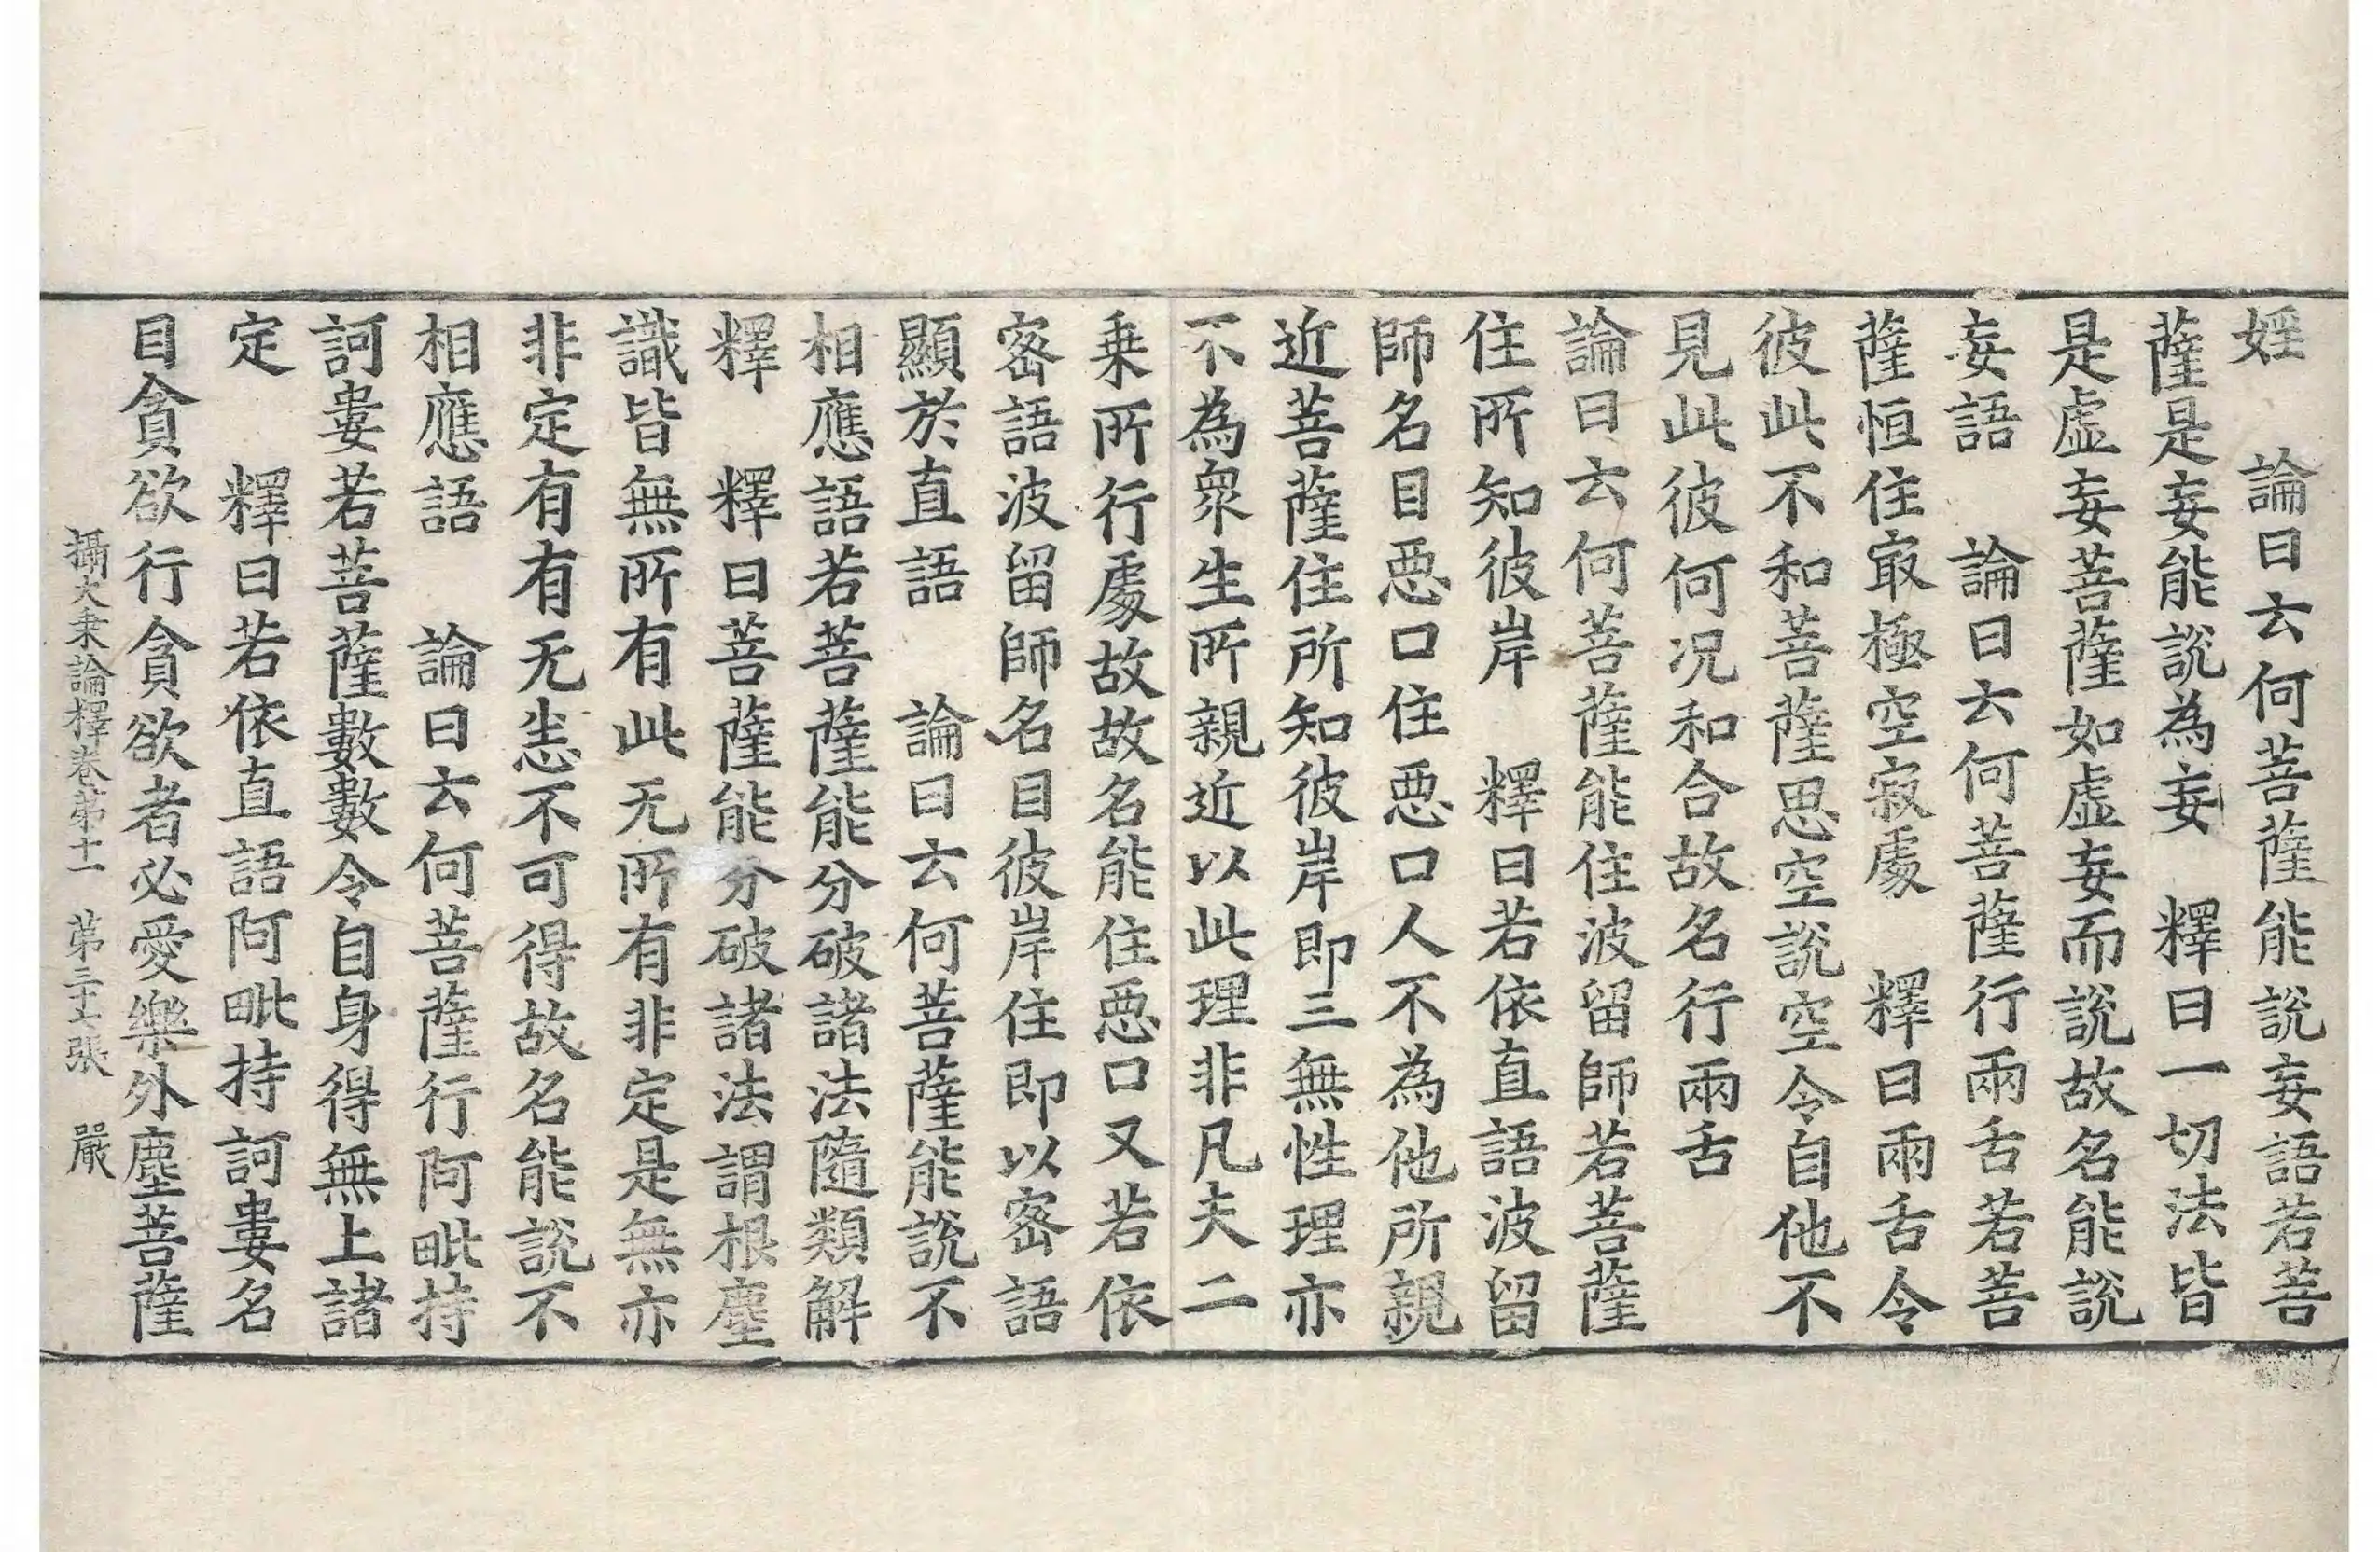 婬　論曰云何菩薩能說妄語若菩
薩是妄能說為妄　釋曰一切法皆
是虛妄菩薩如虛妄而說故名能說
妄語　論曰云何菩薩行兩舌若菩
薩恒住㝡極空寂處　釋曰兩舌令
彼此不和菩薩思空說空令自他不
見此彼何况和合故名行兩舌
論曰云何菩薩能住波留師若菩薩
住所知彼岸　釋曰若依直語波留
師名目惡口住惡口人不為他所親
近菩薩住所知彼岸即三無性理亦
不為眾生所親近以此理非凡夫二
乗所行處故故名能住惡口又若依
密語波留師名目彼岸住即以密語
顯於直語　論曰云何菩薩能說不
相應語若菩薩能分破諸法隨類解
釋　釋曰菩薩能分破諸法謂根塵
識皆無所有此无所有非定是無亦
非定有有无恚不可得故名能說不
相應語　論曰云何菩薩行阿毗持
訶婁若菩薩數數令自身得無上諸
定　釋曰若依直語阿毗持訶婁名
目貪欲行貪欲者必愛樂外塵菩薩
攝大乗論釋卷第十一　第三十六張　嚴